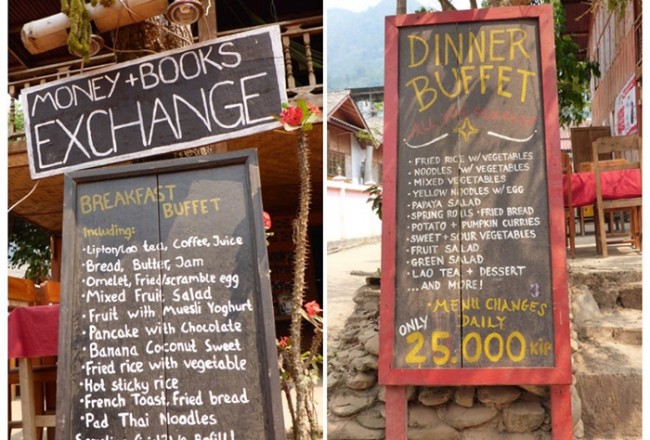 MONEY + BOOKS
EXCHANGE
BREAKFAST
BUFFET
Including:
• Lipton/Lao tea, Coffee, Juice
• Bread, Butter, Jam
• Omelet, Fried/scramble egg
• Mixed Fruit Salad
• Fruit with Muesli Yoghert
• Pancake with Chocolate
• Banana Coconut Sweet
• Fried rice with vegetable
• Hot sticky rice
• French Toast, Fried bread
• Pad Thai Noodles
DINNER
BUFFET
ALL YOU CAN EAT
• FRIED RICE W/ VEGETABLES
• NOODLES W/ VEGETABLES
• MIXED VEGETABLES
• YELLOW NOODLES W/ EGG
• PAPAYA SALAD
• SPRING ROLLS • FRIED BREAD
• POTATO + PUMPKIN CURRIES
• SWEET + SOUR VEGETABLES
• FRUIT SALAD
• GREEN SALAD
• LAO TEA + DESSERT
... AND MORE!
• MENU CHANGES
DAILY
ONLY
25.000 KIP